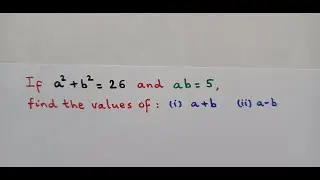 If a² + b² = 26 and ab = 5,
find the values of : (i) a+b (ii) a-b